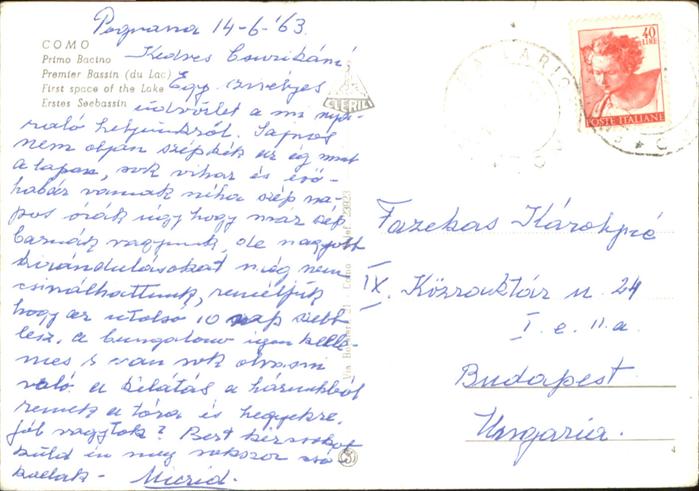 Pognana 14-6-'63.
COMO
Primo Bacino
Premier Bassin (du Lac)
First space of the Lake
Erstes Seebassin
Kedves Csurikáné
Egy szívélyes
üdvözlet a mi nya-
raló helyünkről. Sajnos
nem olyan szép kék az ég mint
a lapon, sok vihar és eső
habár vannak néha szép na-
pos órák úgy hogy már szép
barnák vagyunk, de nagyobb
kirándulásokat még nem
csinálhattunk, reméljük
hogy az utolsó 10 nap szebb
lesz, a bungalow igen kelle-
mes s van sok olvasni
való a kilátás a házunkból
remek a tóra és hegyekre.
Jól vagytok? Bert
küld én meg sokszor csó-
kollak -
CLERICI
40
LIRE
POSTE ITALIANE
LARIO
Fazekas Károlyné
IX. Közraktár u. 24
I. e. 11.a.
Budapest
Ungaria.